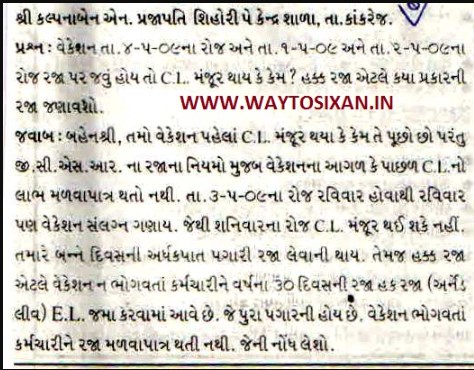 શ્રી કલ્પનાબેન એન. પ્રજાપતિ શિહોરી પે કેન્દ્ર શાળા, તા.કાંકરેજ.
પ્રશ્ન : વેકેશન તા.૪-૫-૦૯ના રોજ અને તા.૧-૫-૦૯ અને તા.૨-૫-૦૯ના
રોજ રજા પર જવું હોય તો C.L. મંજૂર થાય કે કેમ ? હક્ક રજા એટલે કયા પ્રકારની
રજા જણાવશો.
WWW.WAYTOSIXAN.IN
જવાબ : બહેનશ્રી, તમો વેકેશન પહેલાં C.L. મંજૂર થયા કે કેમ તે પૂછો છો પરંતુ
જી.સી.એસ.આર. ના રજાના નિયમો મુજબ વેકેશનના આગળ કે પાછળ C.L.નો
લાભ મળવાપાત્ર થતો નથી. તા.૩-૫-૦૯ના રોજ રવિવાર હોવાથી રવિવાર
પણ વેકેશન સંલગ્ન ગણાય. જેથી શનિવારના રોજ C.L. મંજૂર થઈ શકે નહીં.
તમારે બન્ને દિવસની અર્ધકપાત પગારી રજા લેવાની થાય. તેમજ હક્ક રજા
એટલે વેકેશન ન ભોગવતાં કર્મચારીને વર્ષના ૩૦ દિવસની રજા હક રજા (અર્નેડ
લીવ) E.L. જમા કરવામાં આવે છે. જે પુરા પગારની હોય છે. વેકેશન ભોગવતાં
કર્મચારીને રજા મળવાપાત્ર થતી નથી. જેની નોંધ લેશો.